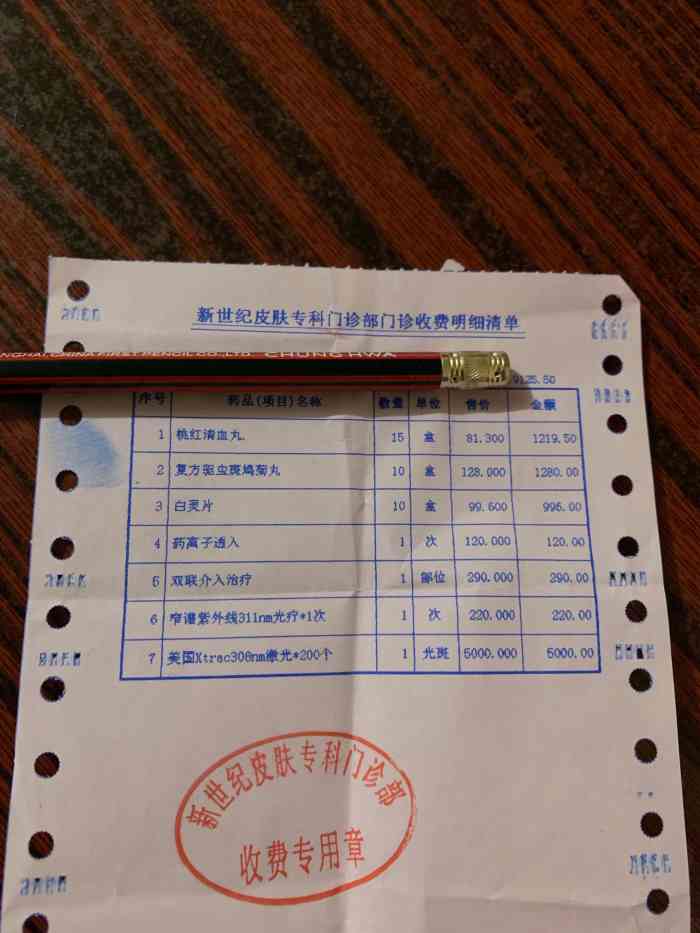 新世纪皮肤专科门诊部门诊收费明细清单
9125.50
序号 药品(项目)名称 数量 单位 售价 金额
1 桃红清血丸 15 盒 81.300 1219.50
2 复方驱虫斑鸠菊丸 10 盒 128.000 1280.00
3 白灵片 10 盒 99.600 996.00
4 药离子透入 1 次 120.000 120.00
5 双联介入治疗 1 部位 290.000 290.00
6 窄谱紫外线311nm光疗*1次 1 次 220.000 220.00
7 美国Xtrac308nm激光*200个 1 光斑 5000.000 5000.00
新世纪皮肤专科门诊部
收费专用章